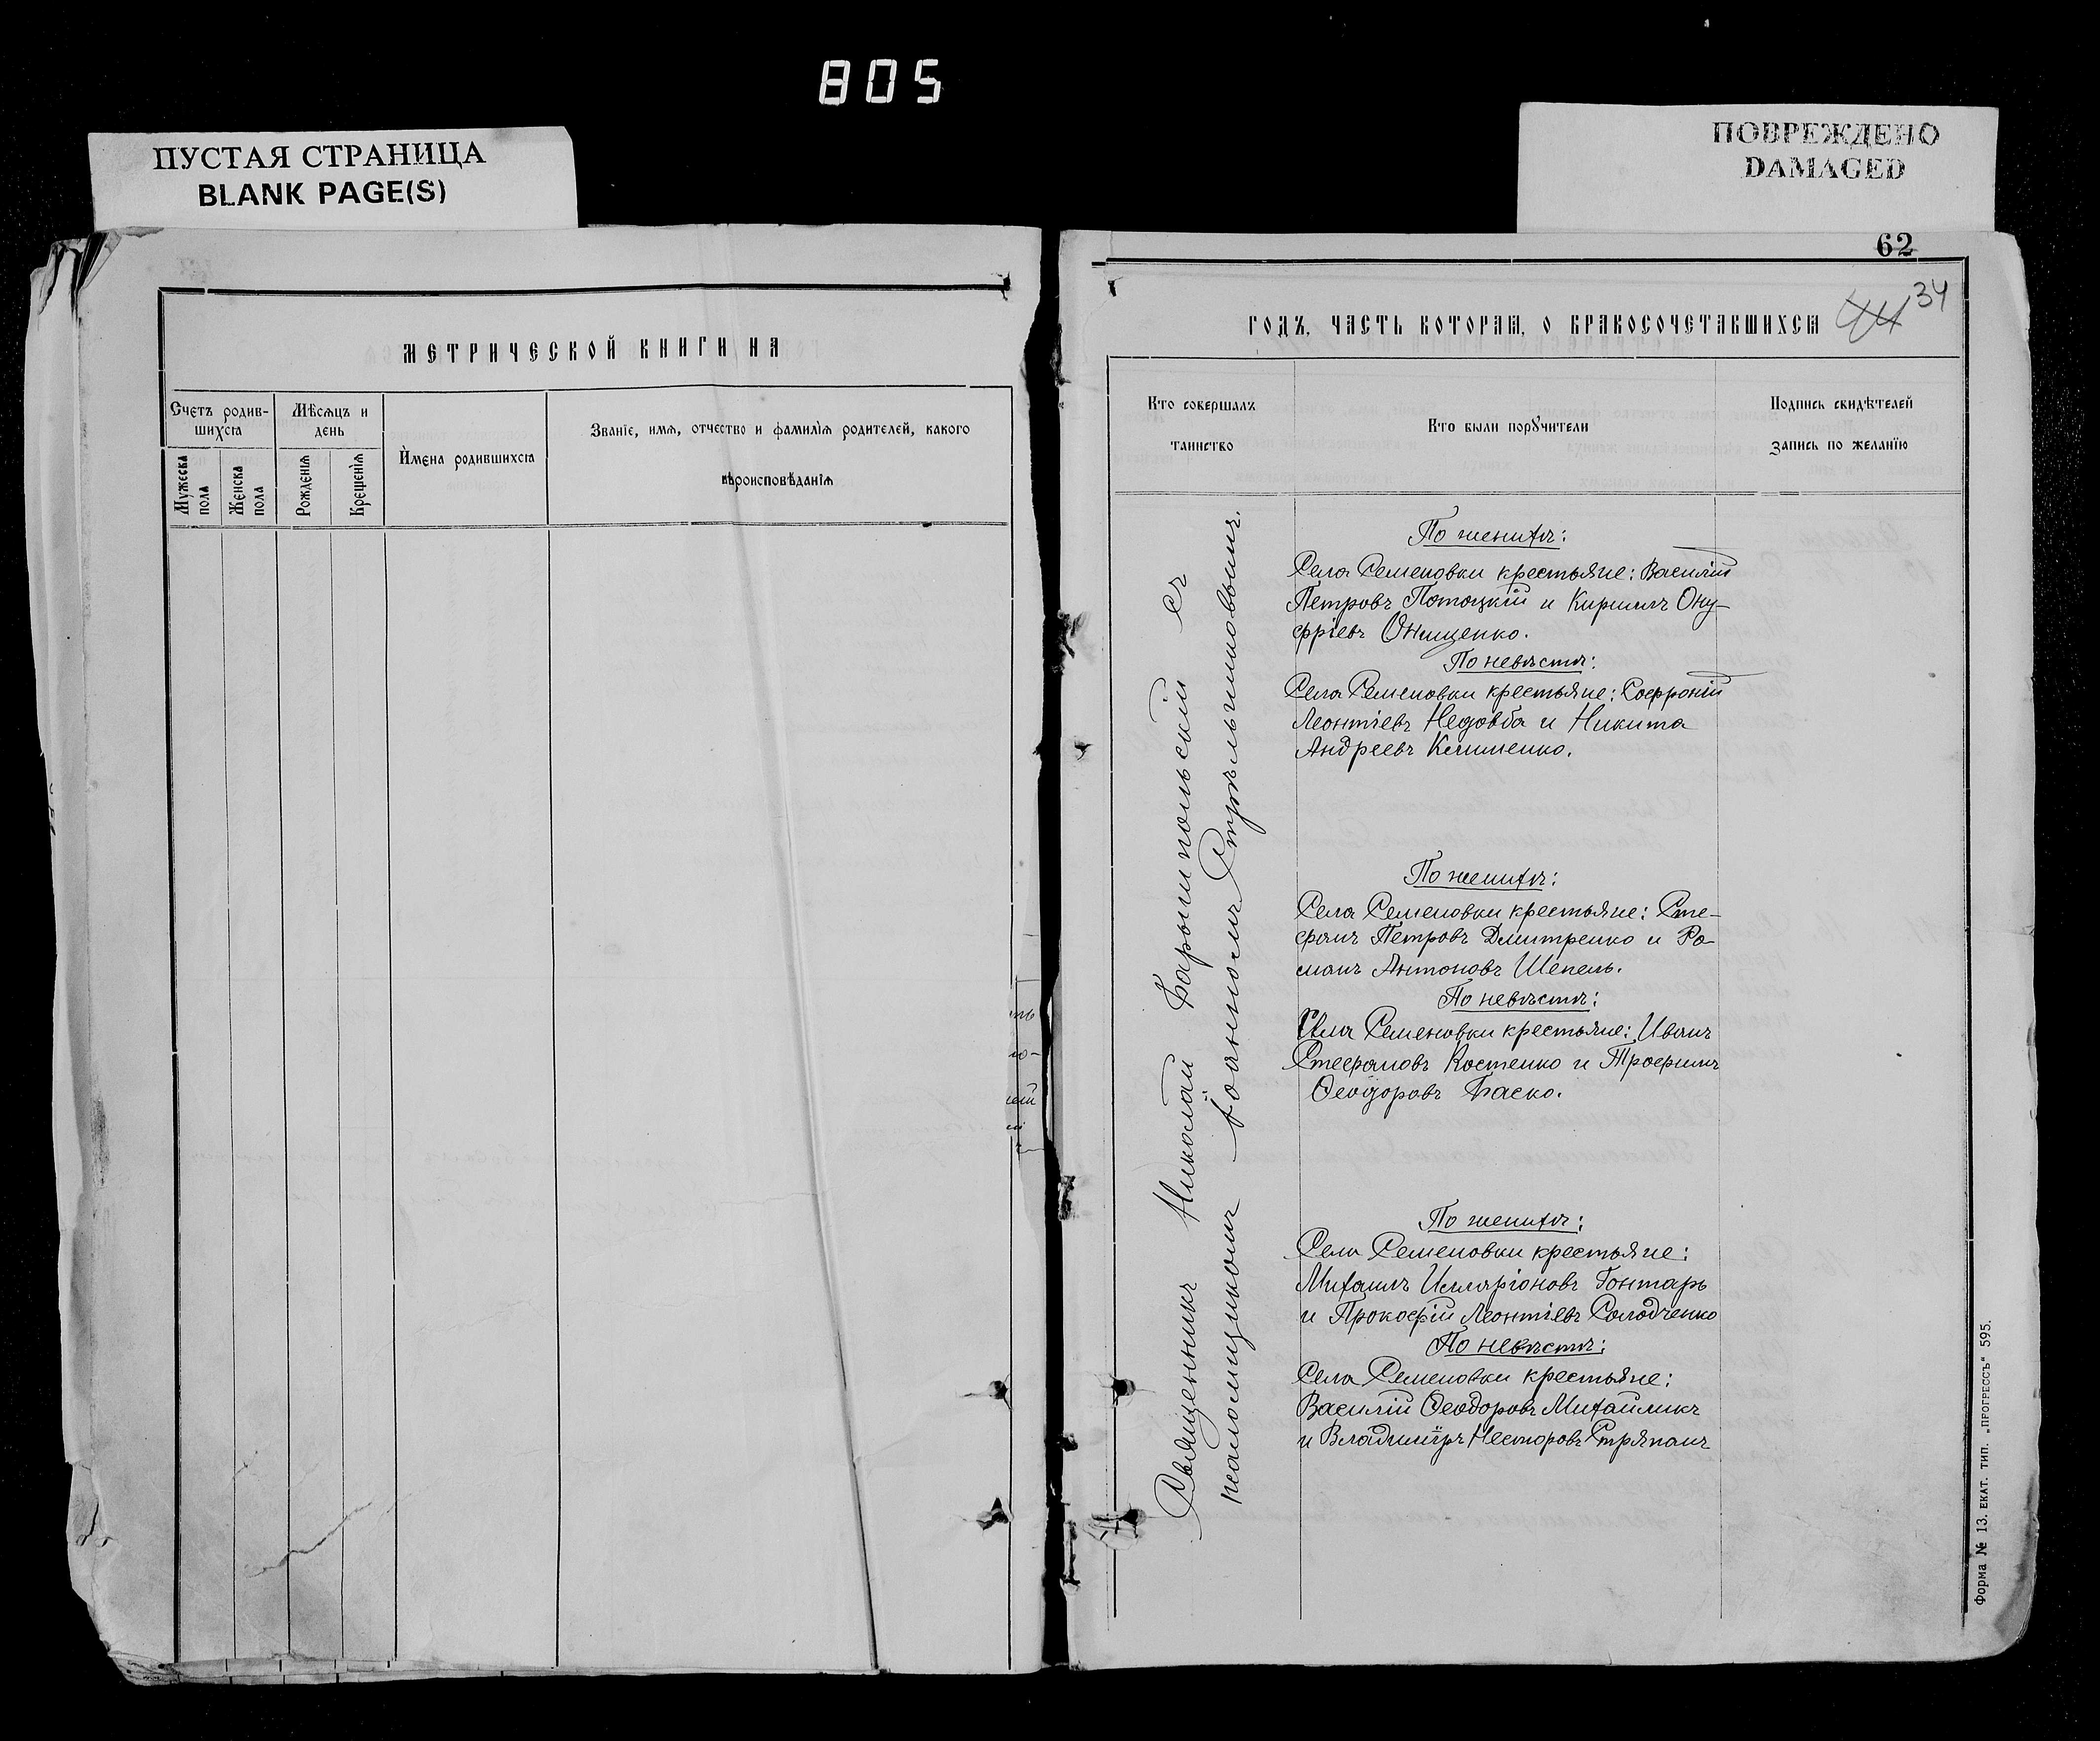 805
ПУСТАЯ СТРАНИЦА
BLANK PAGE(S)
ПОВРЕЖДЕНО
DAMAGED
МЕТРИЧЕСКОЙ КНИГИ НА
Счетъ родив-
шихсѧ
Мѣсѧцъ и
день
Имена родившихсѧ
Званіе, имѧ, отчество и фамиліѧ родителей, какого
вѣроисповѣданіѧ
Мужеска
пола
Женска
пола
Рожденіѧ
Крещеніѧ
62
34
ГОДЪ, ЧАСТЬ КОТОРАѦ, О БРАКОСОЧЕТАВШИХСѦ
Кто совершалъ
таинство
Кто были порꙋчители
Подпись свидѣтелей
Запись по желанїю
Священникъ Николай Барышпольскій съ
псаломщикомъ Іоанномъ Стрѣльниковымъ.
По женихѣ:
Села Семеновки крестьяне: Василій
Петровъ Потоцкій и Кириллъ Ону-
фріевъ Онищенко.
По невѣстѣ:
Села Семеновки крестьяне: Софроній
Леонтіевъ Недовба и Никита
Андреевъ Клименко.
По женихѣ:
Села Семеновки крестьяне: Сте-
фанъ Петровъ Дмитренко и Ро-
манъ Антоновъ Шепель.
По невѣстѣ:
Села Семеновки крестьяне: Иванъ
Стефановъ Костенко и Трофимъ
Ѳеодоровъ Баско.
По женихѣ:
Села Семеновки крестьяне:
Михаилъ Илларіоновъ Гонтарь
и Прокофій Леонтіевъ Солодченко
По невѣстѣ:
Села Семеновки крестьяне:
Василій Ѳеодоровъ Михайликъ
и Владиміръ Несторовъ Стряпанъ
Форма № 13. ЕКАТ. ТИП. „ПРОГРЕССЪ“ 595.